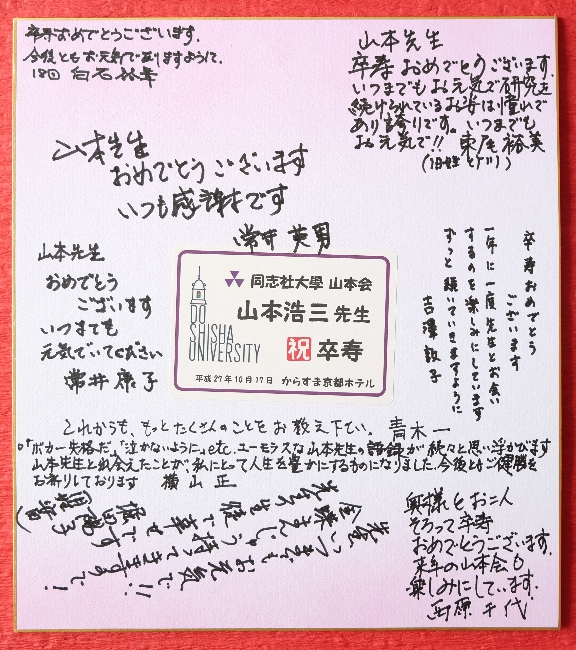 卒寿おめでとうございます。
今後ともお元気で
18回 白石
山本先生
卒寿おめでとうございます。
いつまでもお元気で研究を
続けられているお姿は憧れで
あり誇りです。いつまでも
お元気で!! 東尾 裕美
(旧姓
山本先生
おめでとうございます
いつも感謝です
常井 英男
山本先生
おめでとう
ございます
いつまでも
元気でいてください
常井 康子
同志社大學 山本会
山本浩三先生
祝 卒寿
DO
SHISHA
UNIVERSITY
平成27年10月17日 からすま京都ホテル
卒寿おめでとう
ございます
一年に一度先生とお会い
するのを楽しみにしています
ずっと続いていきますように
吉澤 敦子
これからも、もっとたくさんのことをお教え下さい。 青木 一
"ボカー失格だ、「泣かないように」etc. ユーモラスな山本先生の語録が続々と思い浮かびます
山本先生と出会えたことが、私にとって人生を豊かにするものになりました。今後ともご健勝を
お祈りしております 横山 正
先生、いつまでもお元気
で
奥様とお二人
そろって卒寿
おめでとうございます。
来年の山本会も
楽しみにしています。
西原 千代